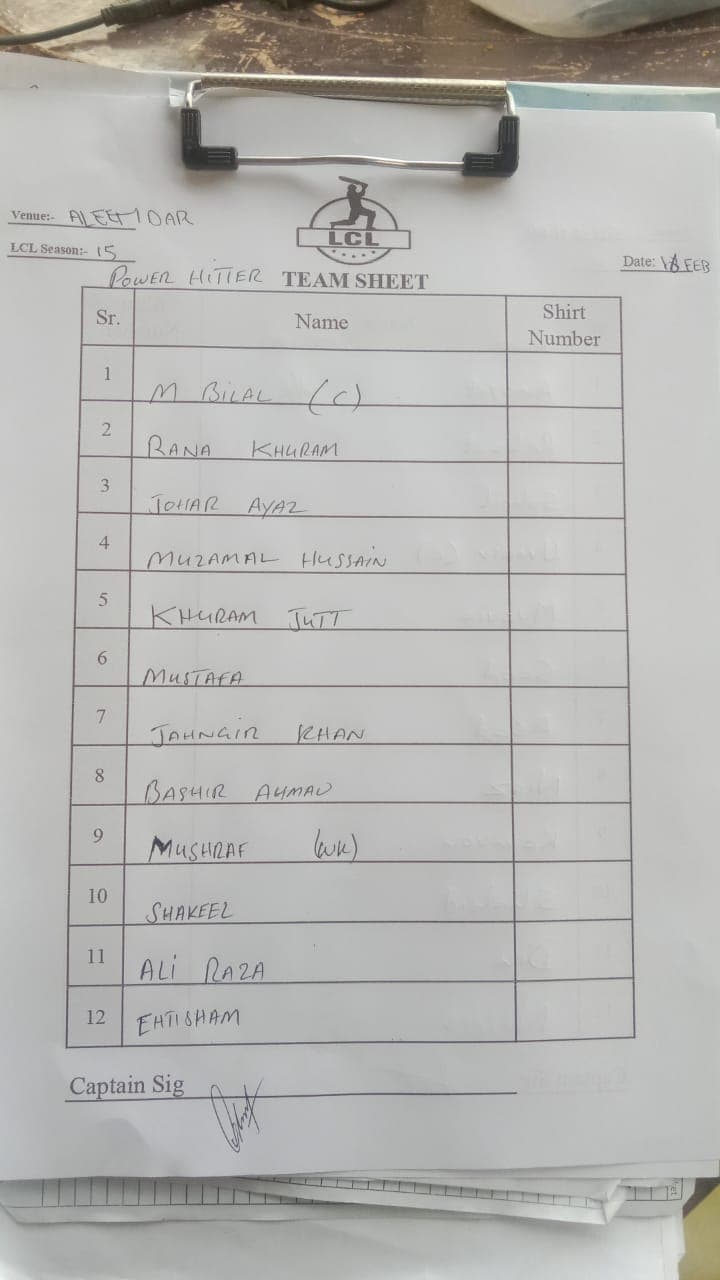 LCL
Venue:- ALEEM DAR
LCL Season:- 15
Date: FEB
POWER HITTER TEAM SHEET
Sr. Name Shirt Number
1 M BILAL (C)
2 RANA KHURAM
3 JOHAR AYAZ
4 MUZAMAL HUSSAIN
5 KHURAM JUTT
6 MUSTAFA
7 JAHNGIR KHAN
8 BASHIR AHMAD
9 MUSHRAF (WK)
10 SHAKEEL
11 ALI RAZA
12 EHTISHAM
Captain Sig